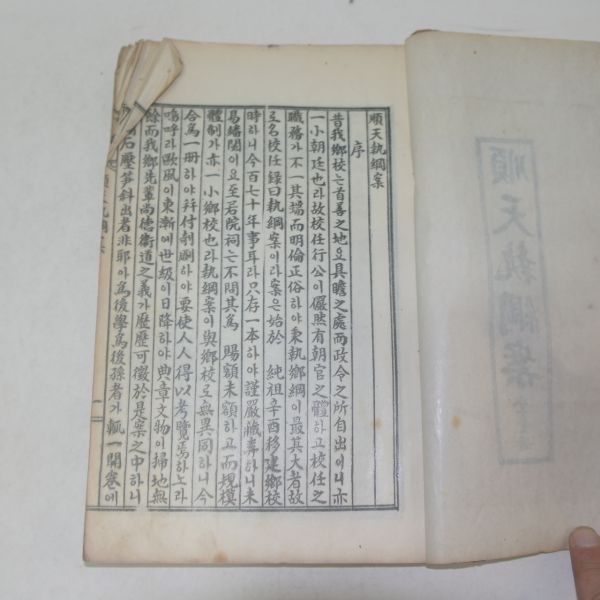 順天執綱案
序
昔我鄕校는首善之地요具瞻之處而政令之所自出이니亦
一小朝廷也라故校任行公이儼然有朝官之體하고校任之
職務가不一其場而明倫正俗하야秉執鄕綱이最其大者故
로名校任錄曰執綱案이라案은始於 純祖辛酉移建鄕校
時라니今百七十年事耳라只存一本하야謹嚴藏弆하니未
易繙閱이요至若院祠는不問其爲 賜額未額하고而規模
體制가亦一小鄕校也라執綱案이與鄕校로無異同하니今
合爲一冊하야幷付剞劂하야要使人人得以考覽焉하노라
嗚呼라歐風이東漸에世級이日降하야典章文物이掃地無
餘而我鄕先輩尙德衛道之義가歷歷可徵於是案之中하니
石壓笋斜出者非耶아爲後學爲後孫者가輒一開卷에
順天執綱案
一
順天執綱案